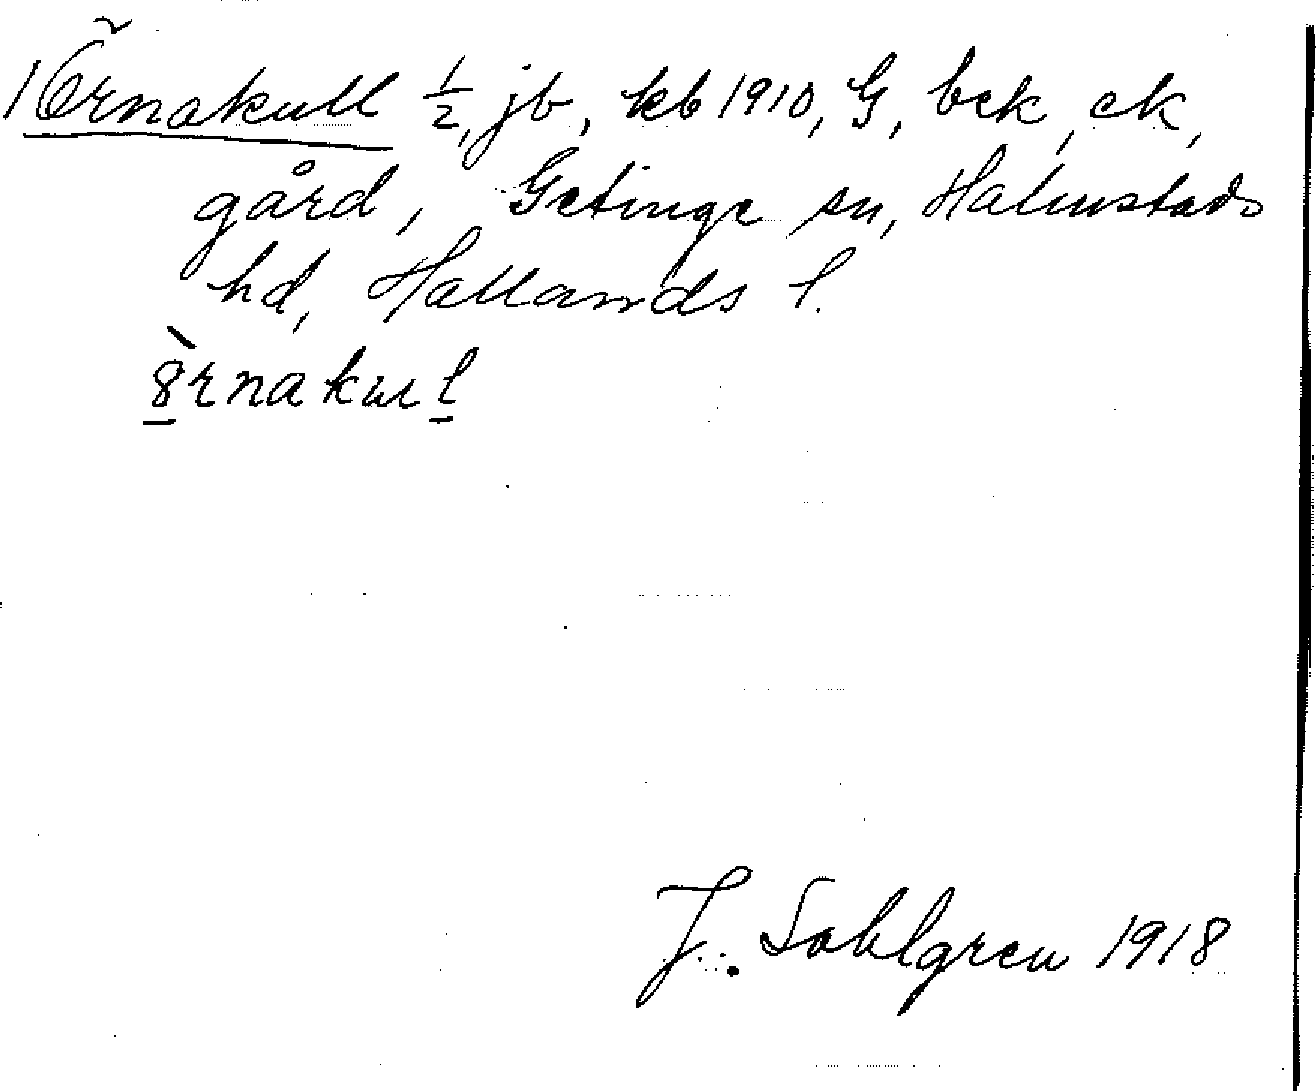 1 Örnakull 1/2, jb, kb 1910, G, bek, ek,
gård, Getinge sn, Halmstads
hd, Hallands l.
8̀rnakul
J. Sahlgren 1918